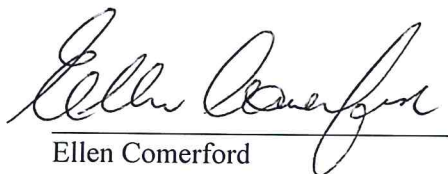 Ellen Comerford
Ellen Comerford